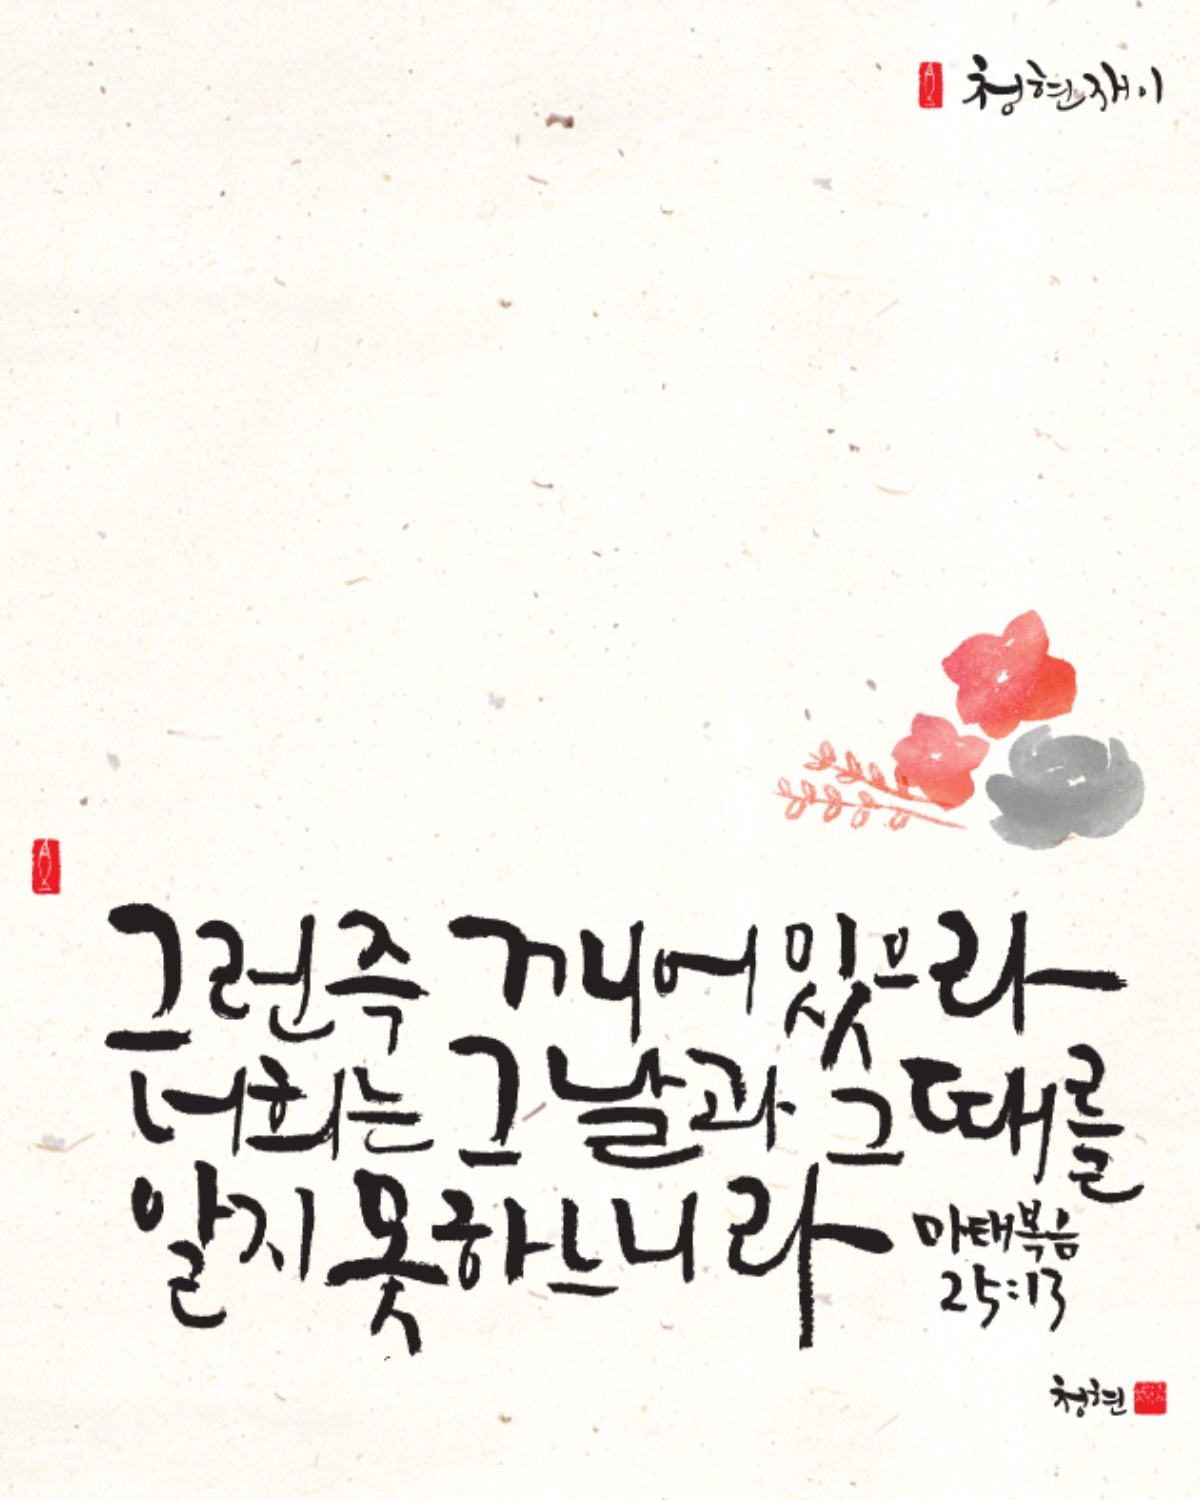 청현재이
그런즉 깨어 있으라
너희는 그 날과 그 때를
알지 못하느니라
마태복음
25:13
청현